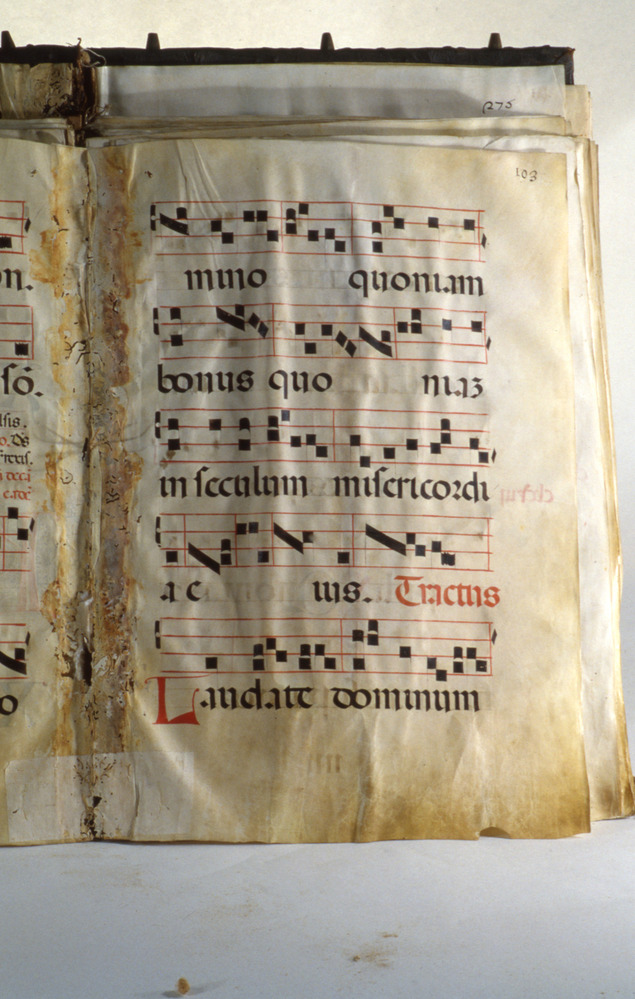 275
103
mino quoniam
bonus quo niaz
in seculum misericordi
a e ius. Tractus
Laudate dominum